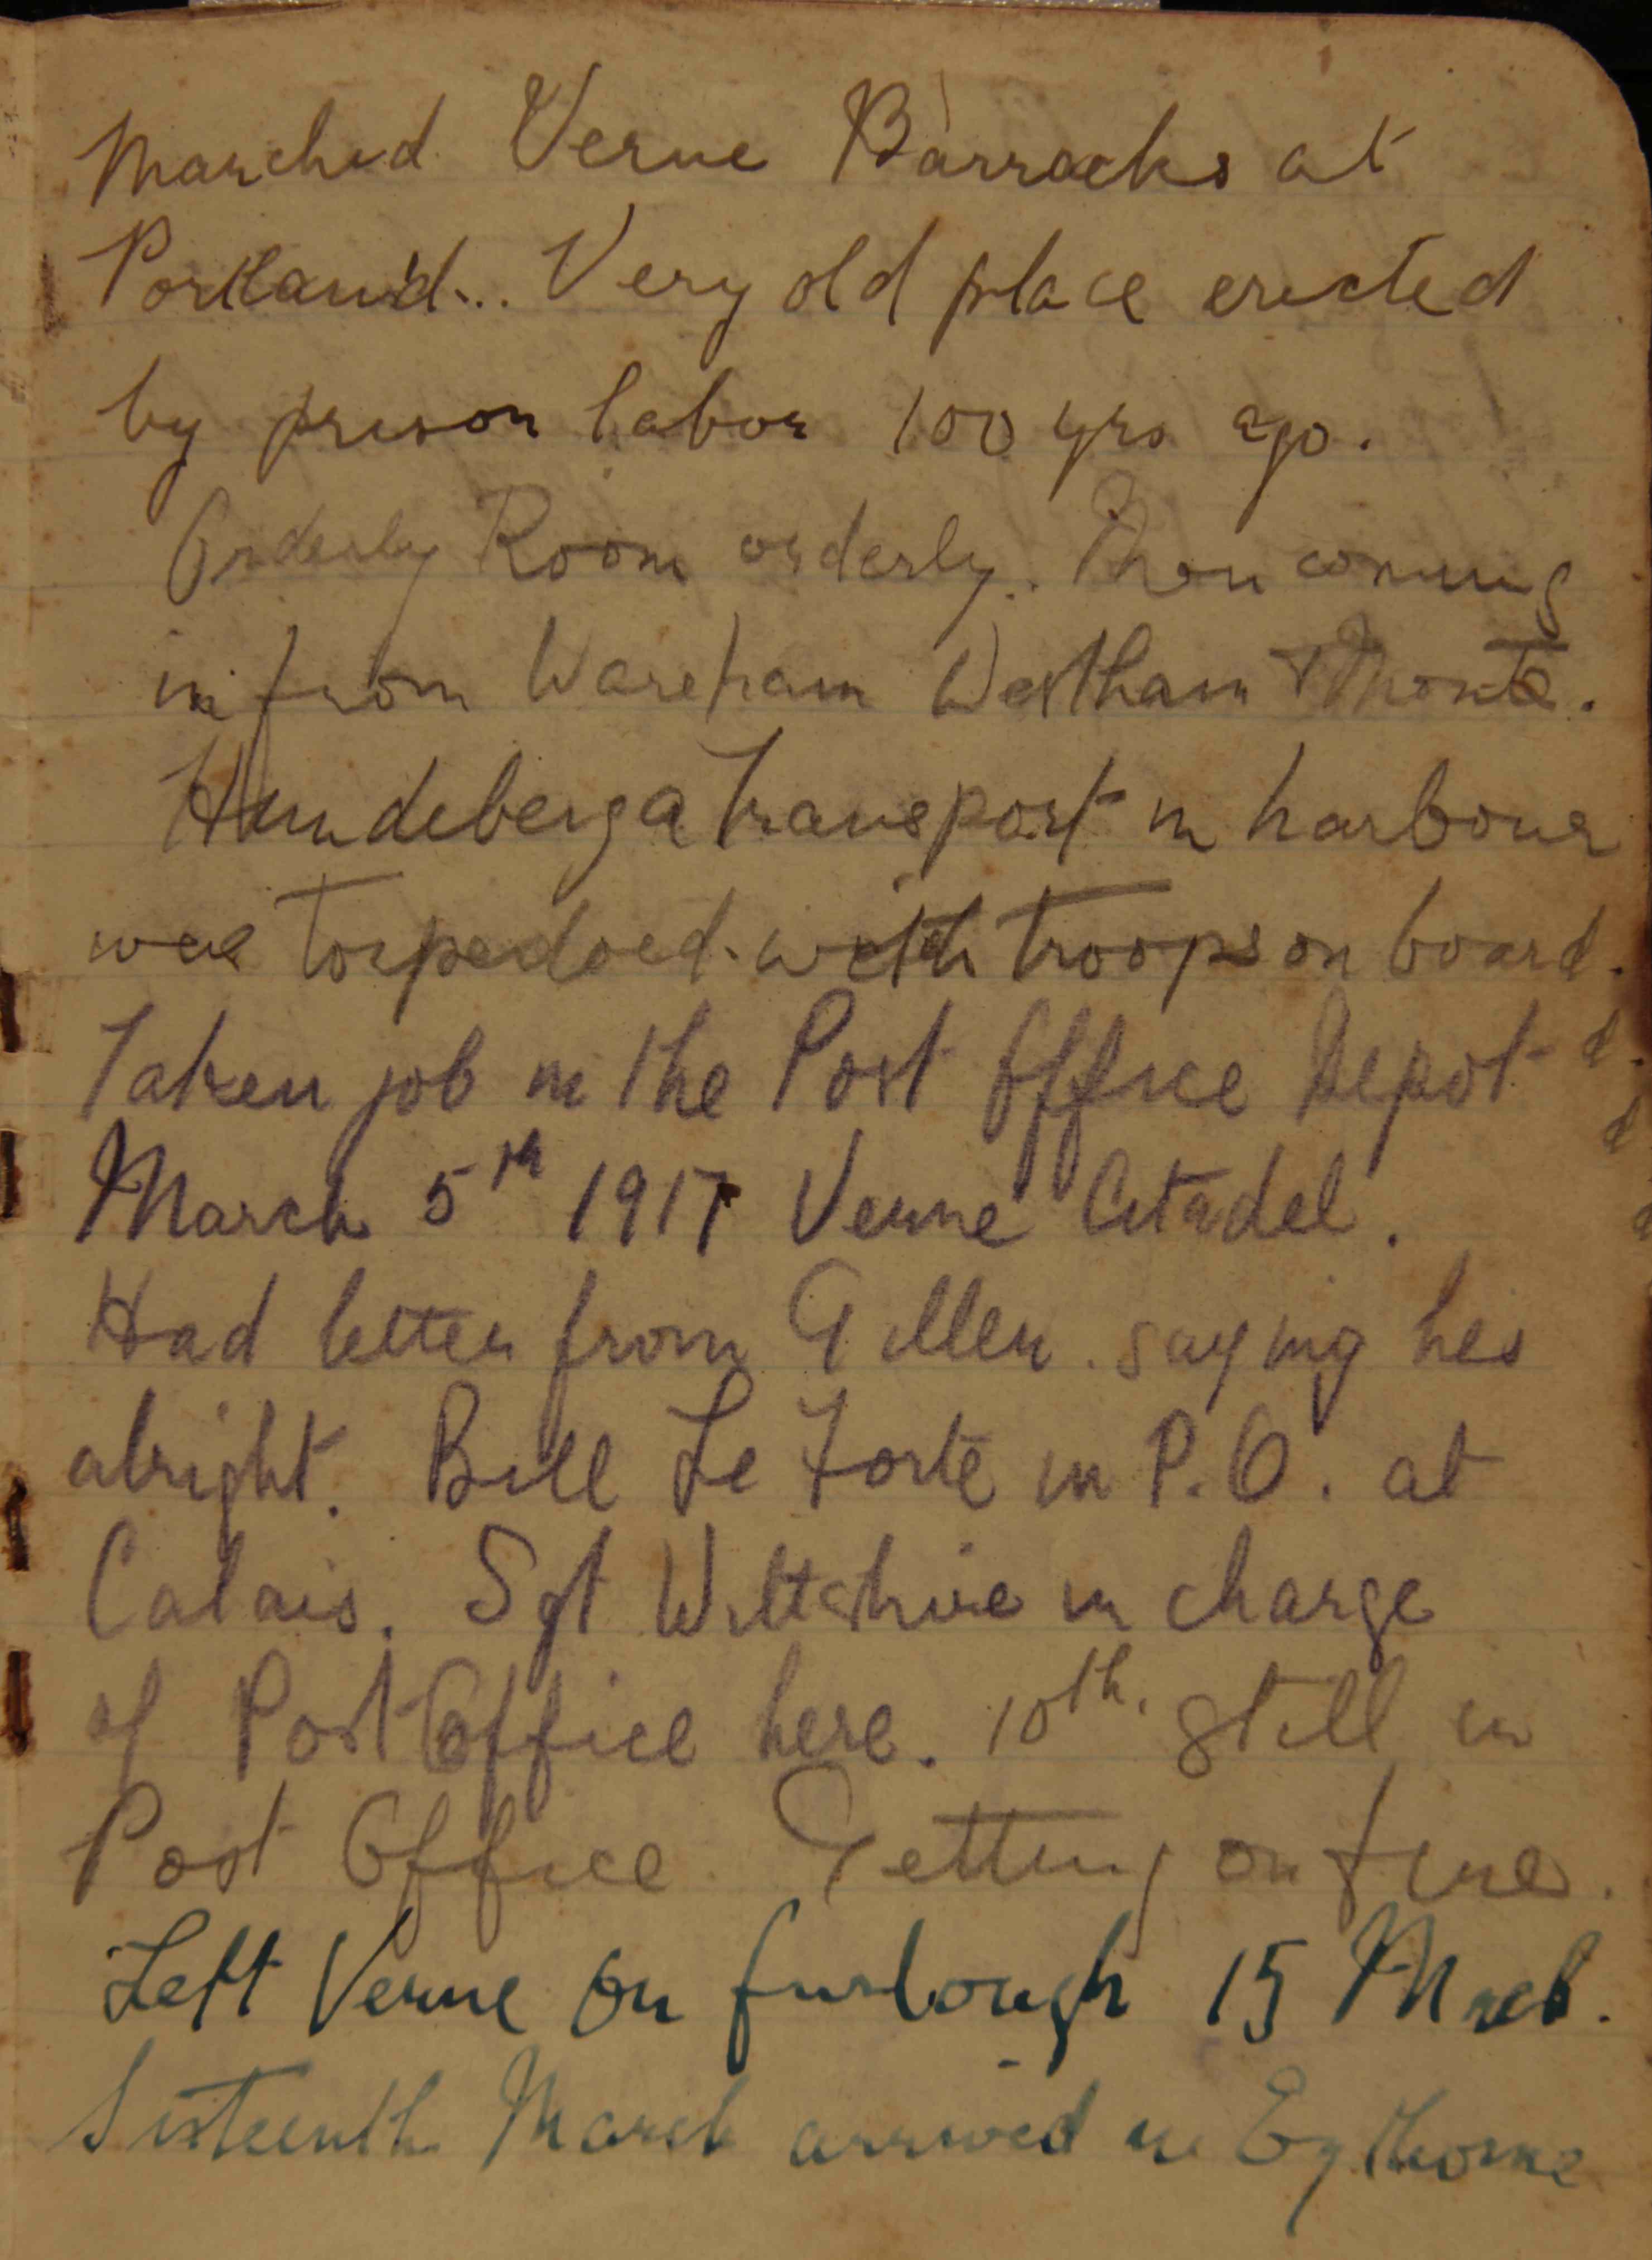 Marched Verne Barracks at
Portland... Very old place erected
by prison labor 100 yrs ago.
Orderly Room orderly. Men coming
in from Wareham Westham & Monte.
Hundeberga transport in harbour
was torpedoed with troops on board.
Taken job in the Post Office Depot
March 5th 1917 Verne Citadel.
Had letter from Gillen. saying hes
alright. Bill Le Forte in P.O. at
Calais. Sgt Wiltshire in charge
of Post Office here. 10th. Still in
Post Office. Getting on fine.
Left Verne on furlough 15 March.
Sixteenth March arrived in Eythorne